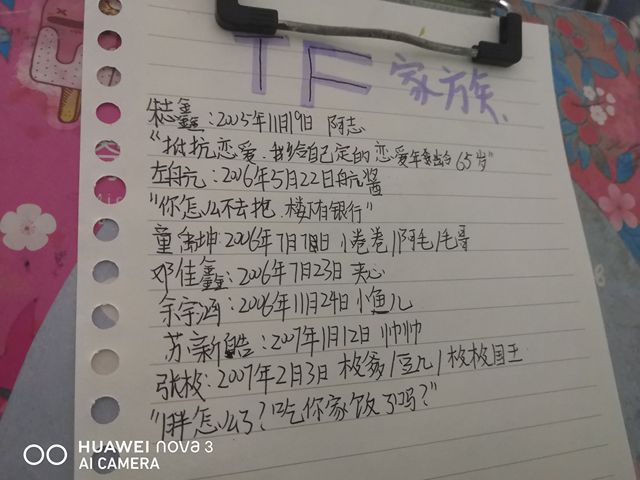 TF家族
朱志鑫:2005年11月19日 阿志
"抵抗恋爱.我给自己定的恋爱年龄是65岁"
左航:2006年5月22日航酱
"你怎么不去抱.楼下有银行"
童禹坤:2006年7月18日 小卷卷/阿毛/毛哥
邓佳鑫:2006年7月23日 夹心
余宇涵:2006年11月24日小鱼儿
苏新皓:2007年1月12日 帅帅
张极:2007年2月3日 极爹/豆几/极极国王
"胖怎么了?吃你家饭了吗?"
HUAWEI nova 3
AI CAMERA